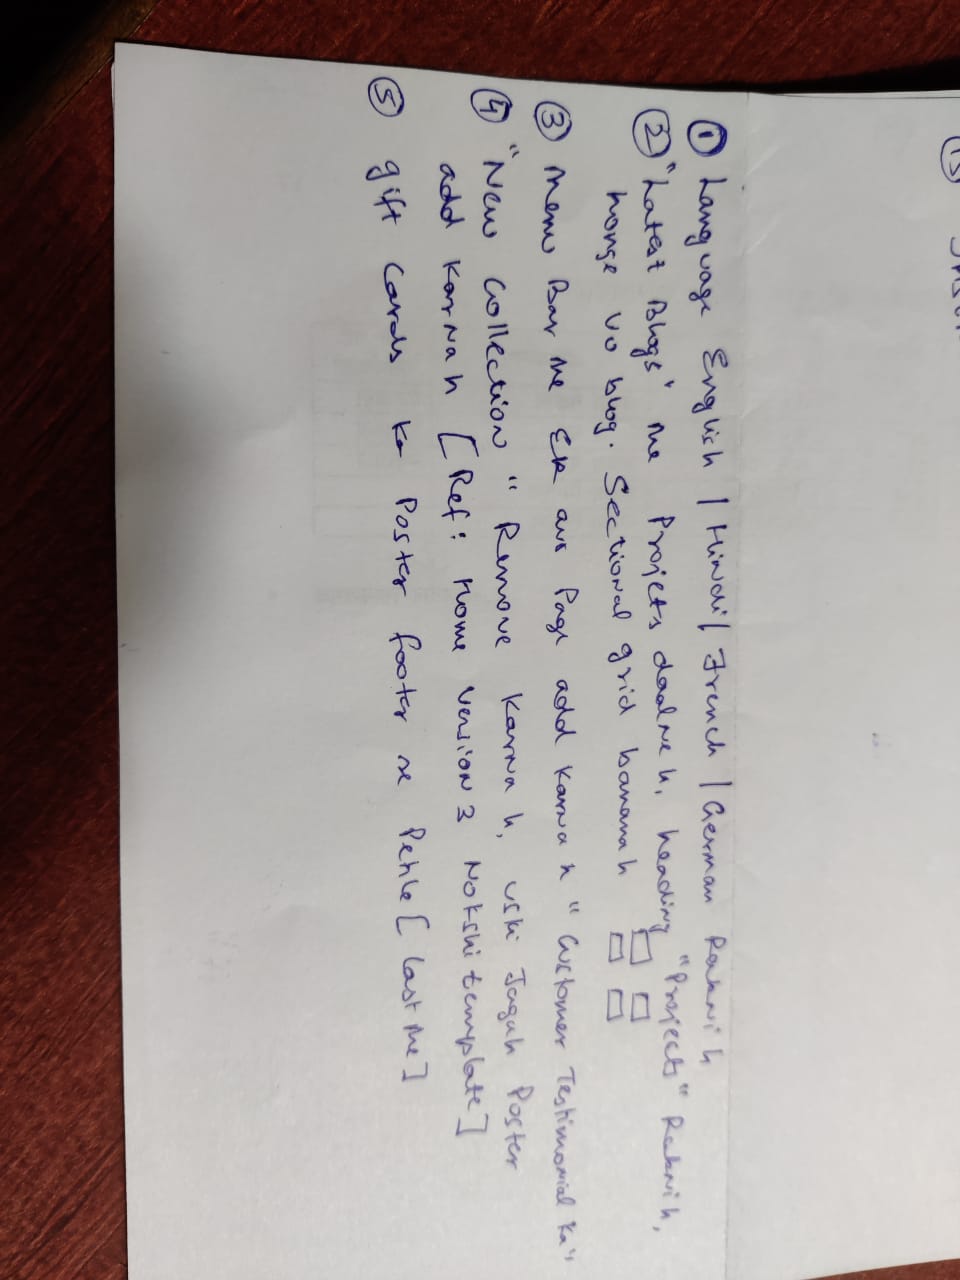 ① Language English | Hindi | French | German Rakhni h
② "Latest Blogs" me Projets daalne h, heading "Projects" Rakhni h,
honge vo blog. Sectional grid banana h
③ Menu Bar me Ek aur Page add Karna h "Customer Testimonial Ka"
④ "New Collection" Remove Karna h, uski Jagah Poster
add Karna h [Ref: Home Version 3 Nokshi template]
⑤ gift Cards ka Poster footer se Pehle [last me]